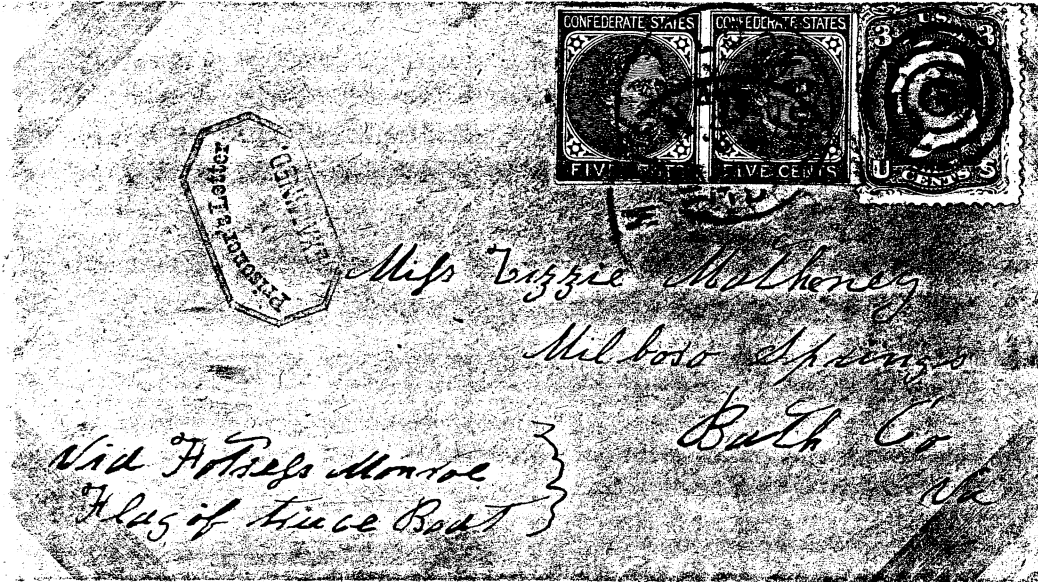 CONFEDERATE STATES CONFEDERATE STATES
FIVE FIVE CENTS
U.S.
3 3
U S
CENTS
Prisoner's Letter
EXAMINED.
Miſs Lizzie Malhoney
Milboro Springs
Bath Co
Va
Via Fotreſs Monroe
Flag of truce Boat